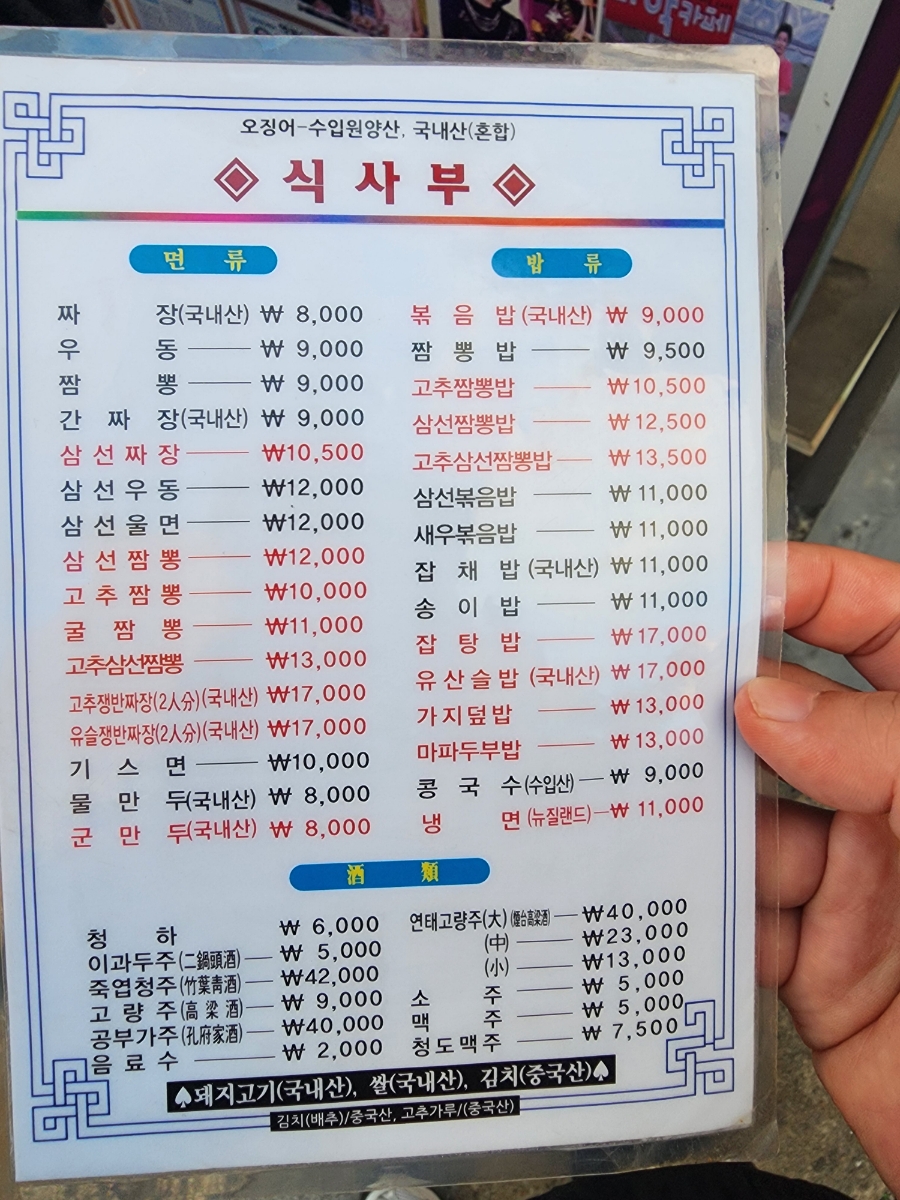 약카페
오징어-수입원양산, 국내산(혼합)
식사부
면 류
짜 장(국내산) ₩ 8,000
우 동 ₩ 9,000
짬 뽕 ₩ 9,000
간 짜 장(국내산) ₩ 9,000
삼 선 짜 장 ₩10,500
삼 선 우 동 ₩12,000
삼 선 울 면 ₩12,000
삼 선 짬 뽕 ₩12,000
고 추 짬 뽕 ₩10,000
굴 짬 뽕 ₩11,000
고추삼선짬뽕 ₩13,000
고추쟁반짜장(2人分)(국내산) ₩17,000
유슬쟁반짜장(2人分)(국내산) ₩17,000
기 스 면 ₩10,000
물 만 두(국내산) ₩ 8,000
군 만 두(국내산) ₩ 8,000
밥 류
볶 음 밥(국내산) ₩ 9,000
짬 뽕 밥 ₩ 9,500
고추짬뽕밥 ₩10,500
삼선짬뽕밥 ₩12,500
고추삼선짬뽕밥 ₩13,500
삼선볶음밥 ₩11,000
새우볶음밥 ₩11,000
잡 채 밥(국내산) ₩11,000
송 이 밥 ₩11,000
잡 탕 밥 ₩17,000
유 산 슬 밥 (국내산) ₩17,000
가지덮밥 ₩13,000
마파두부밥 ₩13,000
콩 국 수(수입산) ₩ 9,000
냉 면(뉴질랜드) ₩11,000
酒 類
청 하 ₩ 6,000
이과두주(二鍋頭酒) ₩ 5,000
죽엽청주(竹葉靑酒) ₩42,000
고 량 주(高 梁 酒) ₩ 9,000
공부가주(孔府家酒) ₩40,000
음 료 수 ₩ 2,000
연태고량주(大)(煙台高梁酒) ₩40,000
(中) ₩23,000
(小) ₩13,000
소 주 ₩ 5,000
맥 주 ₩ 5,000
청도맥주 ₩ 7,500
♠돼지고기(국내산), 쌀(국내산), 김치(중국산)♠
김치(배추)/중국산, 고추가루/(중국산)